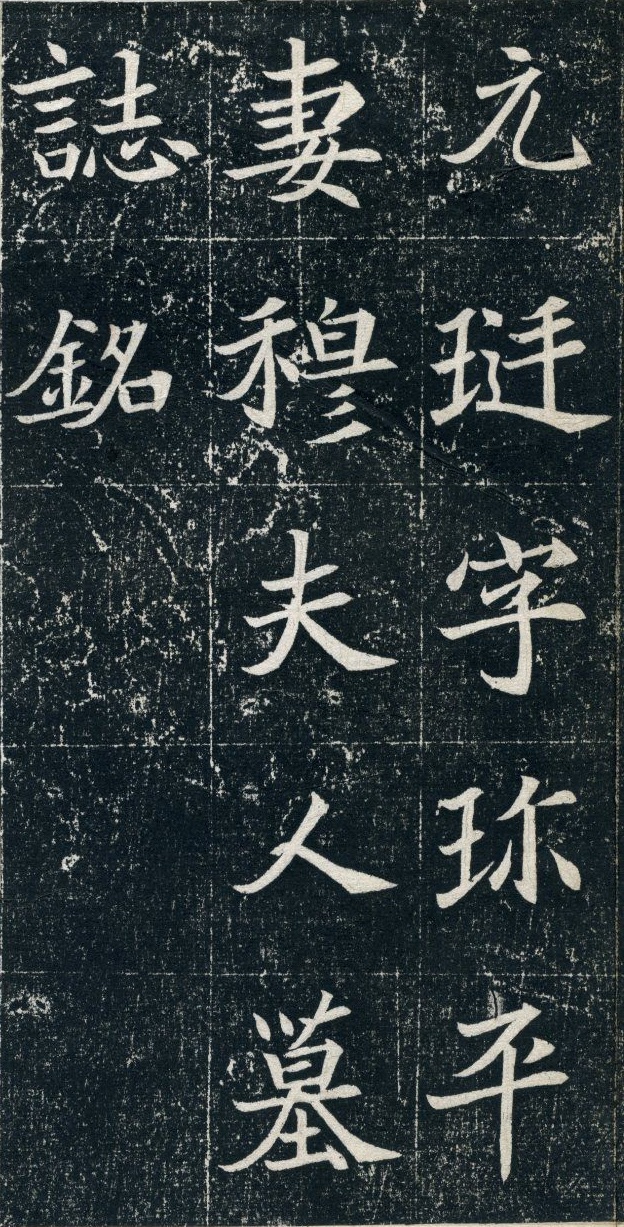 元珽字珎平
妻穆夫人墓
誌銘